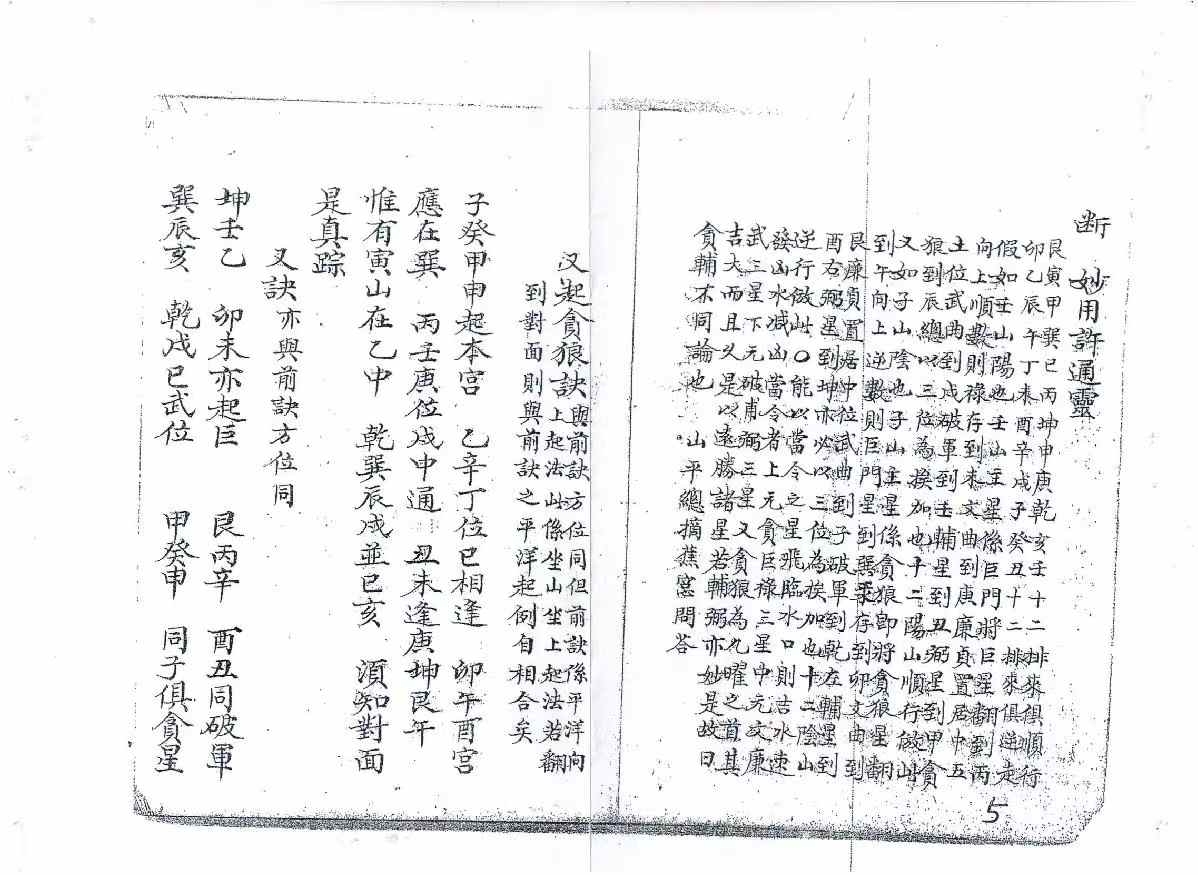 断　妙用許通靈
艮寅甲巽巳丙坤申庚乾亥壬十二排來俱順行
卯乙辰午丁未酉辛戌子癸丑十二排來俱逆走
假如壬山陽也壬山主星係巨門將巨星翻到丙
向上順數則祿存到未文曲到庚廉貞置居中五
土位武曲到戌破軍到壬輔星到丑弼星到甲貪
狼到辰總以三位為挨加也十二陽山順行倣此
又如子山陰也子山主星係貪狼即將貪狼星翻
到午向上逆數則巨門星到巽祿存到卯文曲到
艮廉貞置居中位武曲到子破軍到乾在輔星到
酉右弼星到坤亦必以三位為挨加也十二陰山
逆行倣此○能以當令之星飛臨水口則吉水速
發凶水減凶當令者上元貪巨祿三星中元文廉
武三星下元破甫弼三星又貪狼為九曜之首其
吉大而且久是以遠勝諸星若輔弼亦妙是故曰
貪輔不同論也　山平總摘蕉窓問答
5
又起貪狼訣與前訣方位同但前訣係平洋向
上起法此係坐山坐上起法若翻
到對面則與前訣之平洋起例自相合矣
子癸甲申起本宮　乙辛丁位巳相逢　卯午酉宮
應在巽　丙壬庚位戍中通　丑未逢庚坤艮午
惟有寅山在乙中　乾巽辰戍並巳亥　須知對面
是真踪
又訣亦與前訣方位同
坤壬乙　卯未亦起巨　艮丙辛　酉丑同破軍
巽辰亥　乾戍巳武位　甲癸申　同子俱貪星